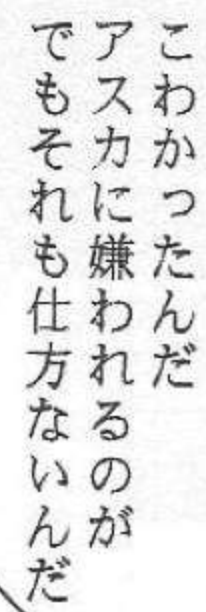 こわかったんだ
アスカに嫌われるのが
でもそれも仕方ないんだ